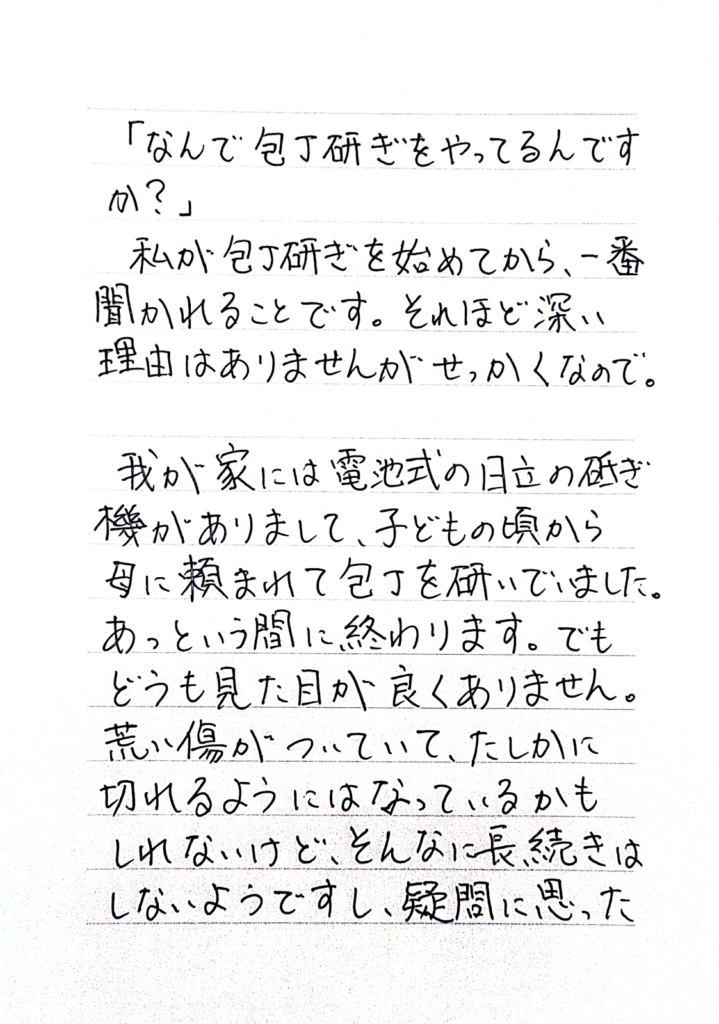 「なんで包丁研ぎをやってるんです
か？」
私が包丁研ぎを始めてから、一番
聞かれることです。それほど深い
理由はありませんがせっかくなので。
我が家には電池式の日立の砥ぎ
機がありまして、子どもの頃から
母に頼まれて包丁を研いでいました。
あっという間に終わります。でも
どうも見た目が良くありません。
荒い傷がついていて、たしかに
切れるようにはなっているかも
しれないけど、そんなに長続きは
しないようですし、疑問に思った